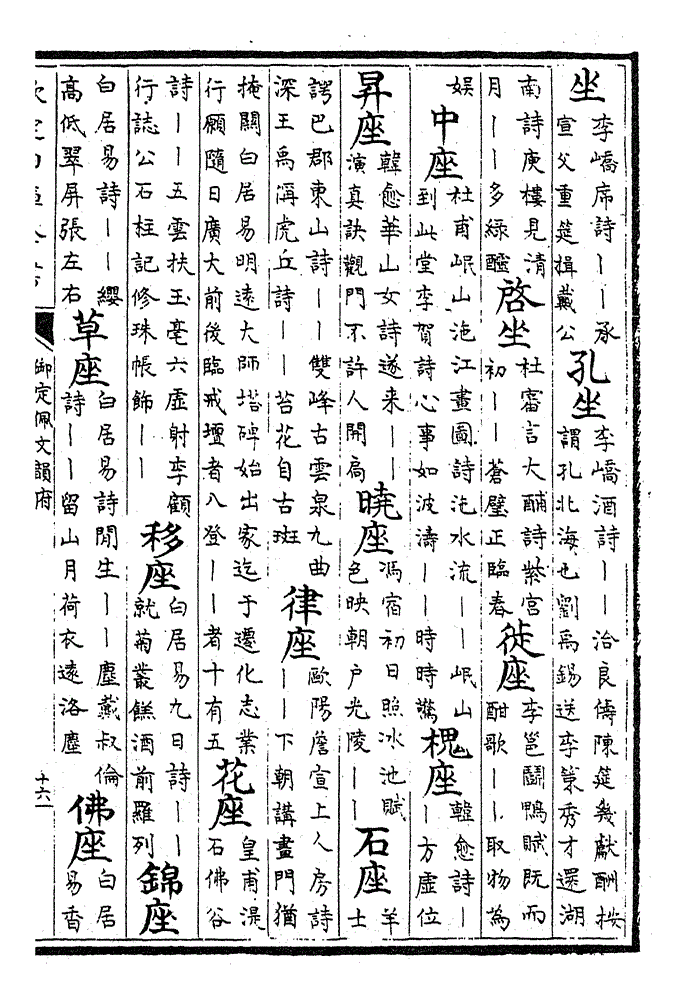 坐李嶠席詩——承宣父重筵揖戴公孔坐李嶠酒詩——洽良儔陳筵幾獻酬按謂孔北海也劉禹錫送李策秀才還湖
南詩庾樓見清月——多綠醽啓坐杜審言大酺詩紫宮初——蒼璧正臨春徙座李邕鬭鴨賦既而酣歌——取物為
娯中座杜甫岷山沲江畫圖詩沱水流——岷山到此堂李賀詩心事如波濤——時時驚槐座韓愈詩——方虛位
昇座韓愈華山女詩遂來——演真訣觀門不許人開扃曉座馮宿初日照冰池賦色映朝戶光陵——石座羊士
諤巴郡東山詩——雙峰古雲泉九曲深王禹偁虎丘詩——苔花自古斑律座歐陽詹宣上人房詩——下朝講晝門猶
掩關白居易明遠大師塔碑始出家迄于遷化志業行願隨日廣大前後臨戒壇者八登——者十有五花座皇甫湜石佛谷
詩——五雲扶玉毫六虛射李顧行誌公石柱記修珠帳飾——移座白居易九日詩——就菊叢餻酒前羅列錦座
白居易詩——纓高低翠屏張左右草座白居易詩閒生——塵戴叔倫詩——留山月荷衣遠洛塵佛座白居易香
御定佩文韻府
十六